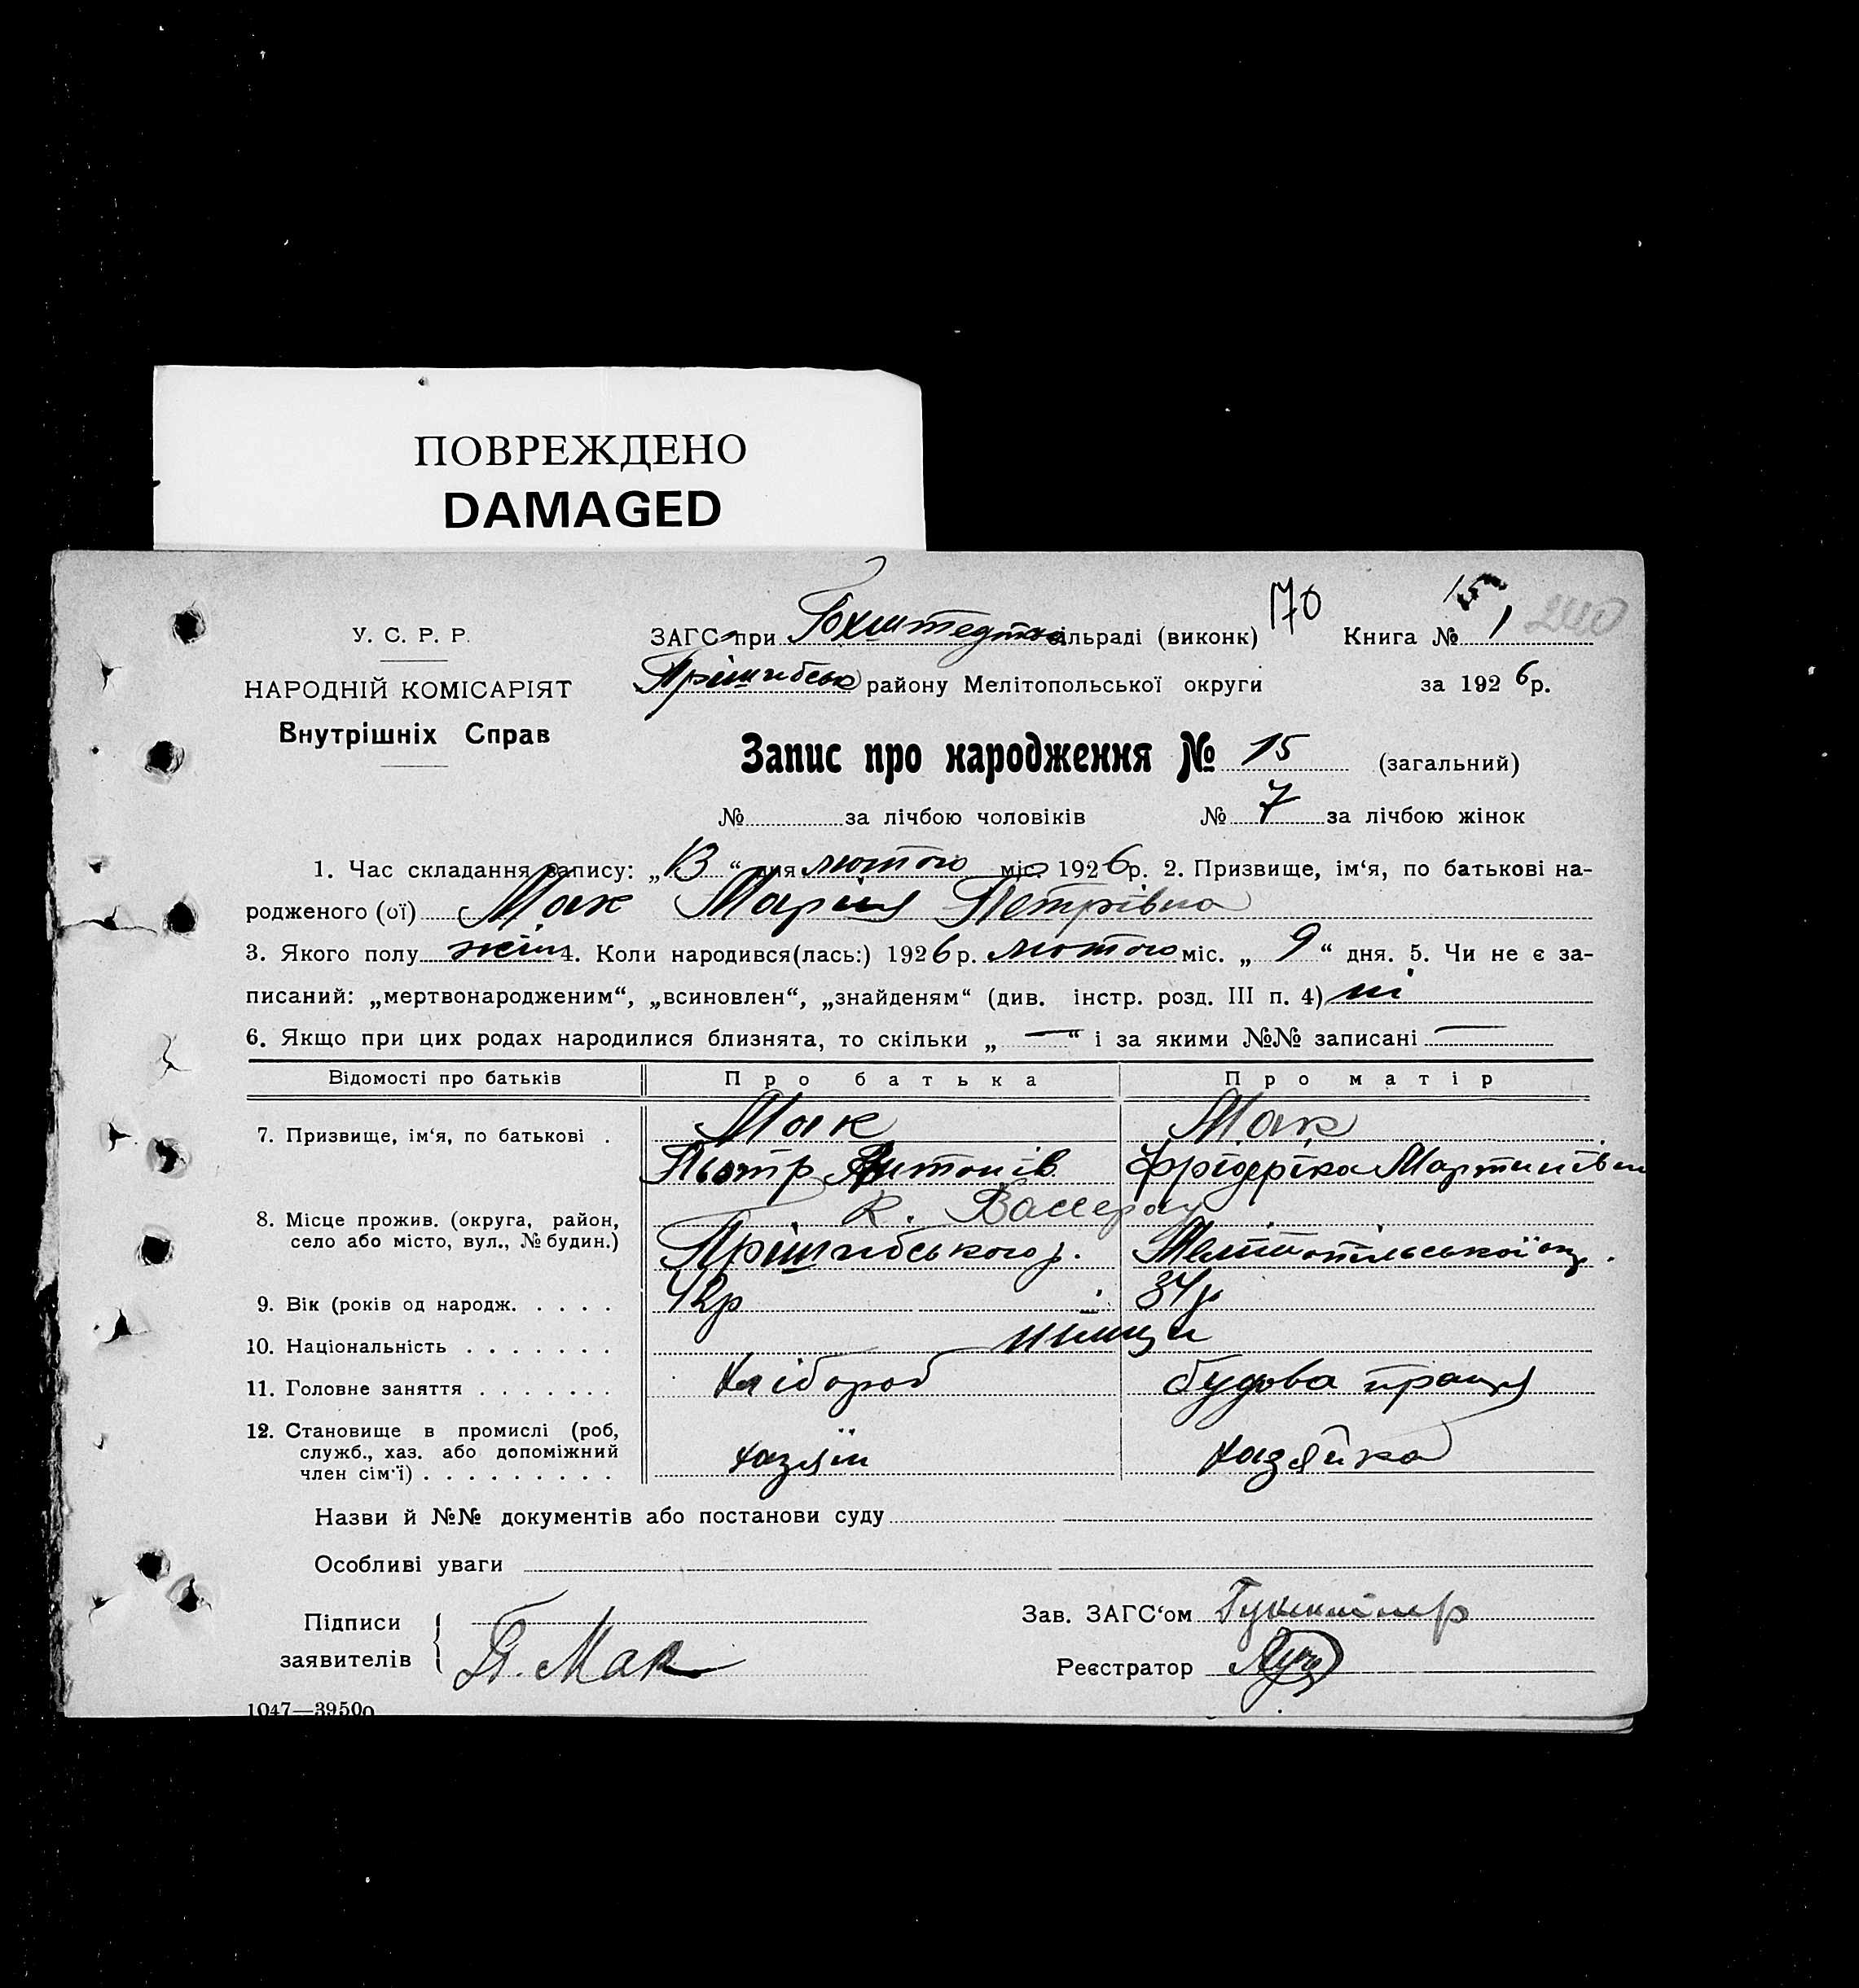 ПОВРЕЖДЕНО
DAMAGED
170
15
У. С. Р. Р.
ЗАГС при Гохштедтск сільраді (виконк)
Книга № 1 240
НАРОДНІЙ КОМІСАРІЯТ
Прішибськ району Мелітопольської округи
за 1926р.
Внутрішніх Справ
Запис про народження № 15 (загальний)
№ за лічбою чоловіків № 7 за лічбою жінок
1. Час складання запису: „13“ дня лютого міс. 1926р. 2. Призвище, ім‘я, по батькові на-
родженого (ої) Мак Марія Петрівна
3. Якого полу жін 4. Коли народився(лась:) 1926р. лютого міс. „9“ дня. 5. Чи не є за-
писаний: „мертвонародженим“, „всиновлен“, „знайденям“ (див. інстр. розд. III п. 4) ні
6. Якщо при цих родах народилися близнята, то скільки „—“ і за якими №№ записані —
Відомості про батьків Про батька Про матір
7. Призвище, ім‘я, по батькові . Мак Мак
Пьотр Антонів Фрідеріка Мартинівна
к. Вассерау
8. Місце прожив. (округа, район,
село або місто, вул., № будин.) Прішибського р. Мелітопільської окр.
9. Вік (років од народж. . . . . 42р 34р
10. Національність . . . . . . . німци
11. Головне заняття . . . . . . . хлібороб будова праця
12. Становище в промислі (роб,
служб., хаз. або допоміжний
член сім‘ї) . . . . . . . . . хазяїн хазяйка
Назви й №№ документів або постанови суду
Особливі уваги
Підписи
заявителів П. Мак
Зав. ЗАГС‘ом
Реєстратор
1047—39500